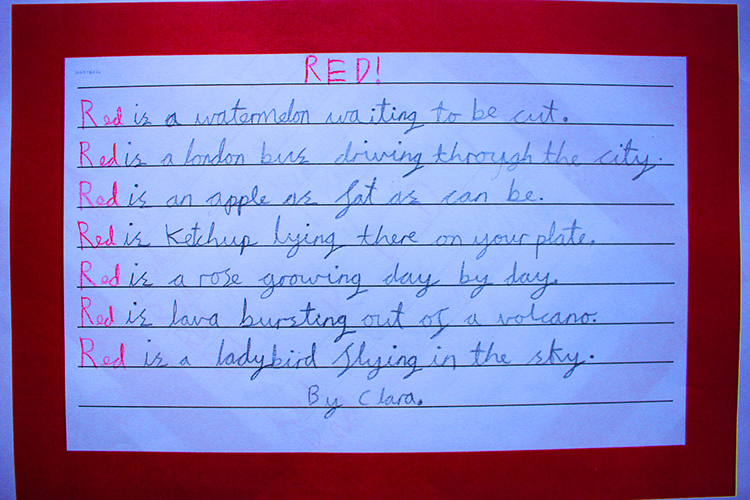 RED!
Red is a watermelon waiting to be cut.
Red is a london bus driving through the city.
Red is an apple as fat as can be.
Red is Ketchup lying there on your plate.
Red is a rose growing day by day.
Red is lava bursting out of a volcano.
Red is a ladybird flying in the sky.
By Clara.